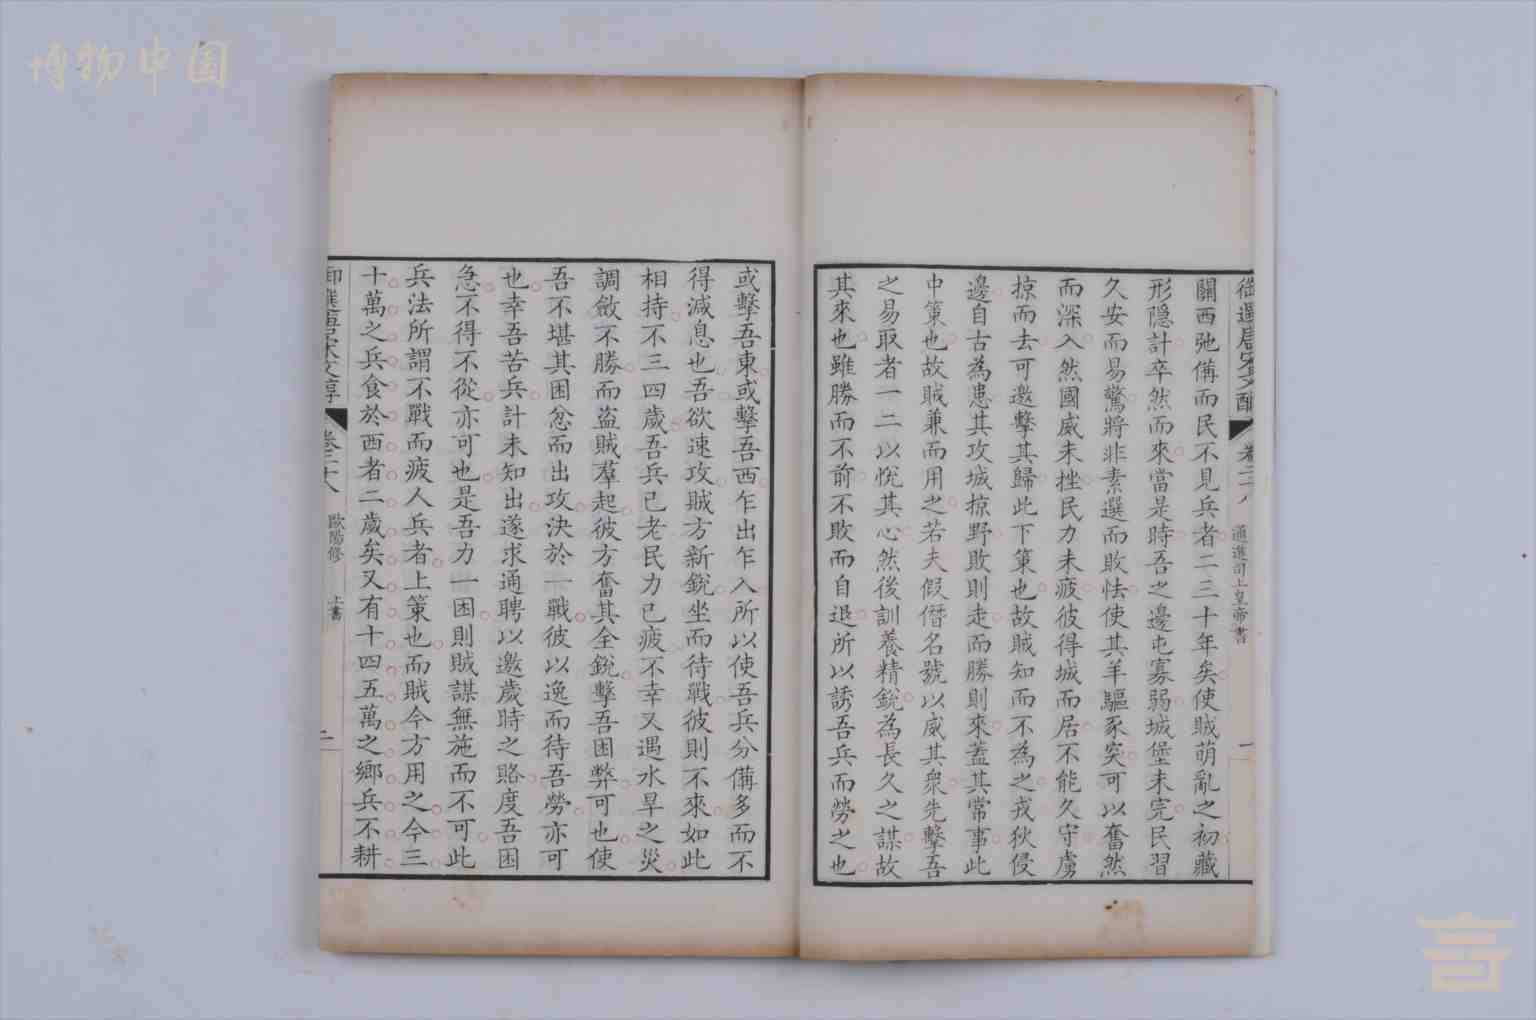 博物中国
關西弛備而民不見兵者二三十年矣使賊萌亂之初藏
形隱計卒然而來當是時吾之邊屯寡弱城堡未完民習
久安而易驚將非素選而敗怯使其羊驅豕突可以奮然
而深入然國威未挫民力未疲彼得城而居不能久守虜
掠而去可邀擊其歸此下策也故賊知而不為之戎狄侵
邊自古為患其攻城掠野敗則走而勝則來蓋其常事此
中策也故賊兼而用之若夫假僭名號以威其衆先擊吾
之易取者一二以悅其心然後訓養精銳為長久之謀故
其來也雖勝而不前不敗而自退所以誘吾兵而勞之也
或擊吾東或擊吾西乍出乍入所以使吾兵分備多而不
得減息也吾欲速攻賊方新銳坐而待戰彼則不來如此
相持不三四歲吾兵已老民力已疲不幸又遇水旱之災
調斂不勝而盜賊羣起彼方奮其全銳擊吾困弊可也使
吾不堪其困忿而出攻決於一戰彼以逸而待吾勞亦可
也幸吾苦兵計未知出遂求通聘以邀歲時之賂度吾困
急不得不從亦可也是吾力一困則賊謀無施而不可此
兵法所謂不戰而疲人兵者上策也而賊今方用之今三
十萬之兵食於西者二歲矣又有十四五萬之鄉兵不耕
御選唐宋文醇 卷二十八 通進司上皇帝書 一
御選唐宋文醇 卷二十八 歐陽修 上書 二